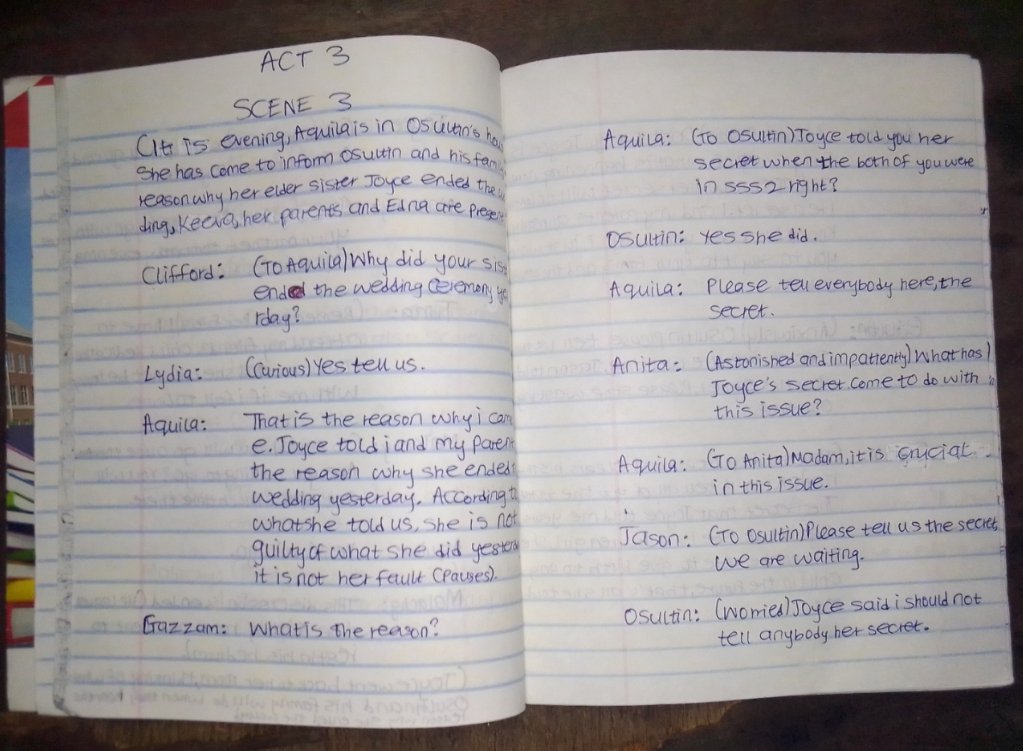 ACT 3
SCENE 3
(It is evening, Aquila is in Osultin's hou
She has come to inform Osultin and his fami
reason why her elder sister Joyce ended the
ding, Keeva, her parents and Edna are presen
Clifford: (To Aquila) Why did your sis
ended the wedding ceremony
rday?
Lydia: (Curious) Yes tell us.
Aquila: That is the reason why i cam
e. Joyce told i and my paren
the reason why she ended
wedding yesterday. According t
what she told us, she is not
guilty of what she did yester
it is not her fault (Pauses).
Gazzam: What is the reason?
Aquila: (To Osultin) Joyce told you her
secret when the both of you were
in SSS2 right?
Osultin: Yes she did.
Aquila: Please tell everybody here, the
secret.
Anita: (Astonished and impatiently) What has
Joyce's secret come to do with
this issue?
Aquila: (To Anita) Madam, it is crucial
in this issue.
Jason: (To Osultin) Please tell us the secret
we are waiting.
Osultin: (Worried) Joyce said i should not
tell anybody her secret.